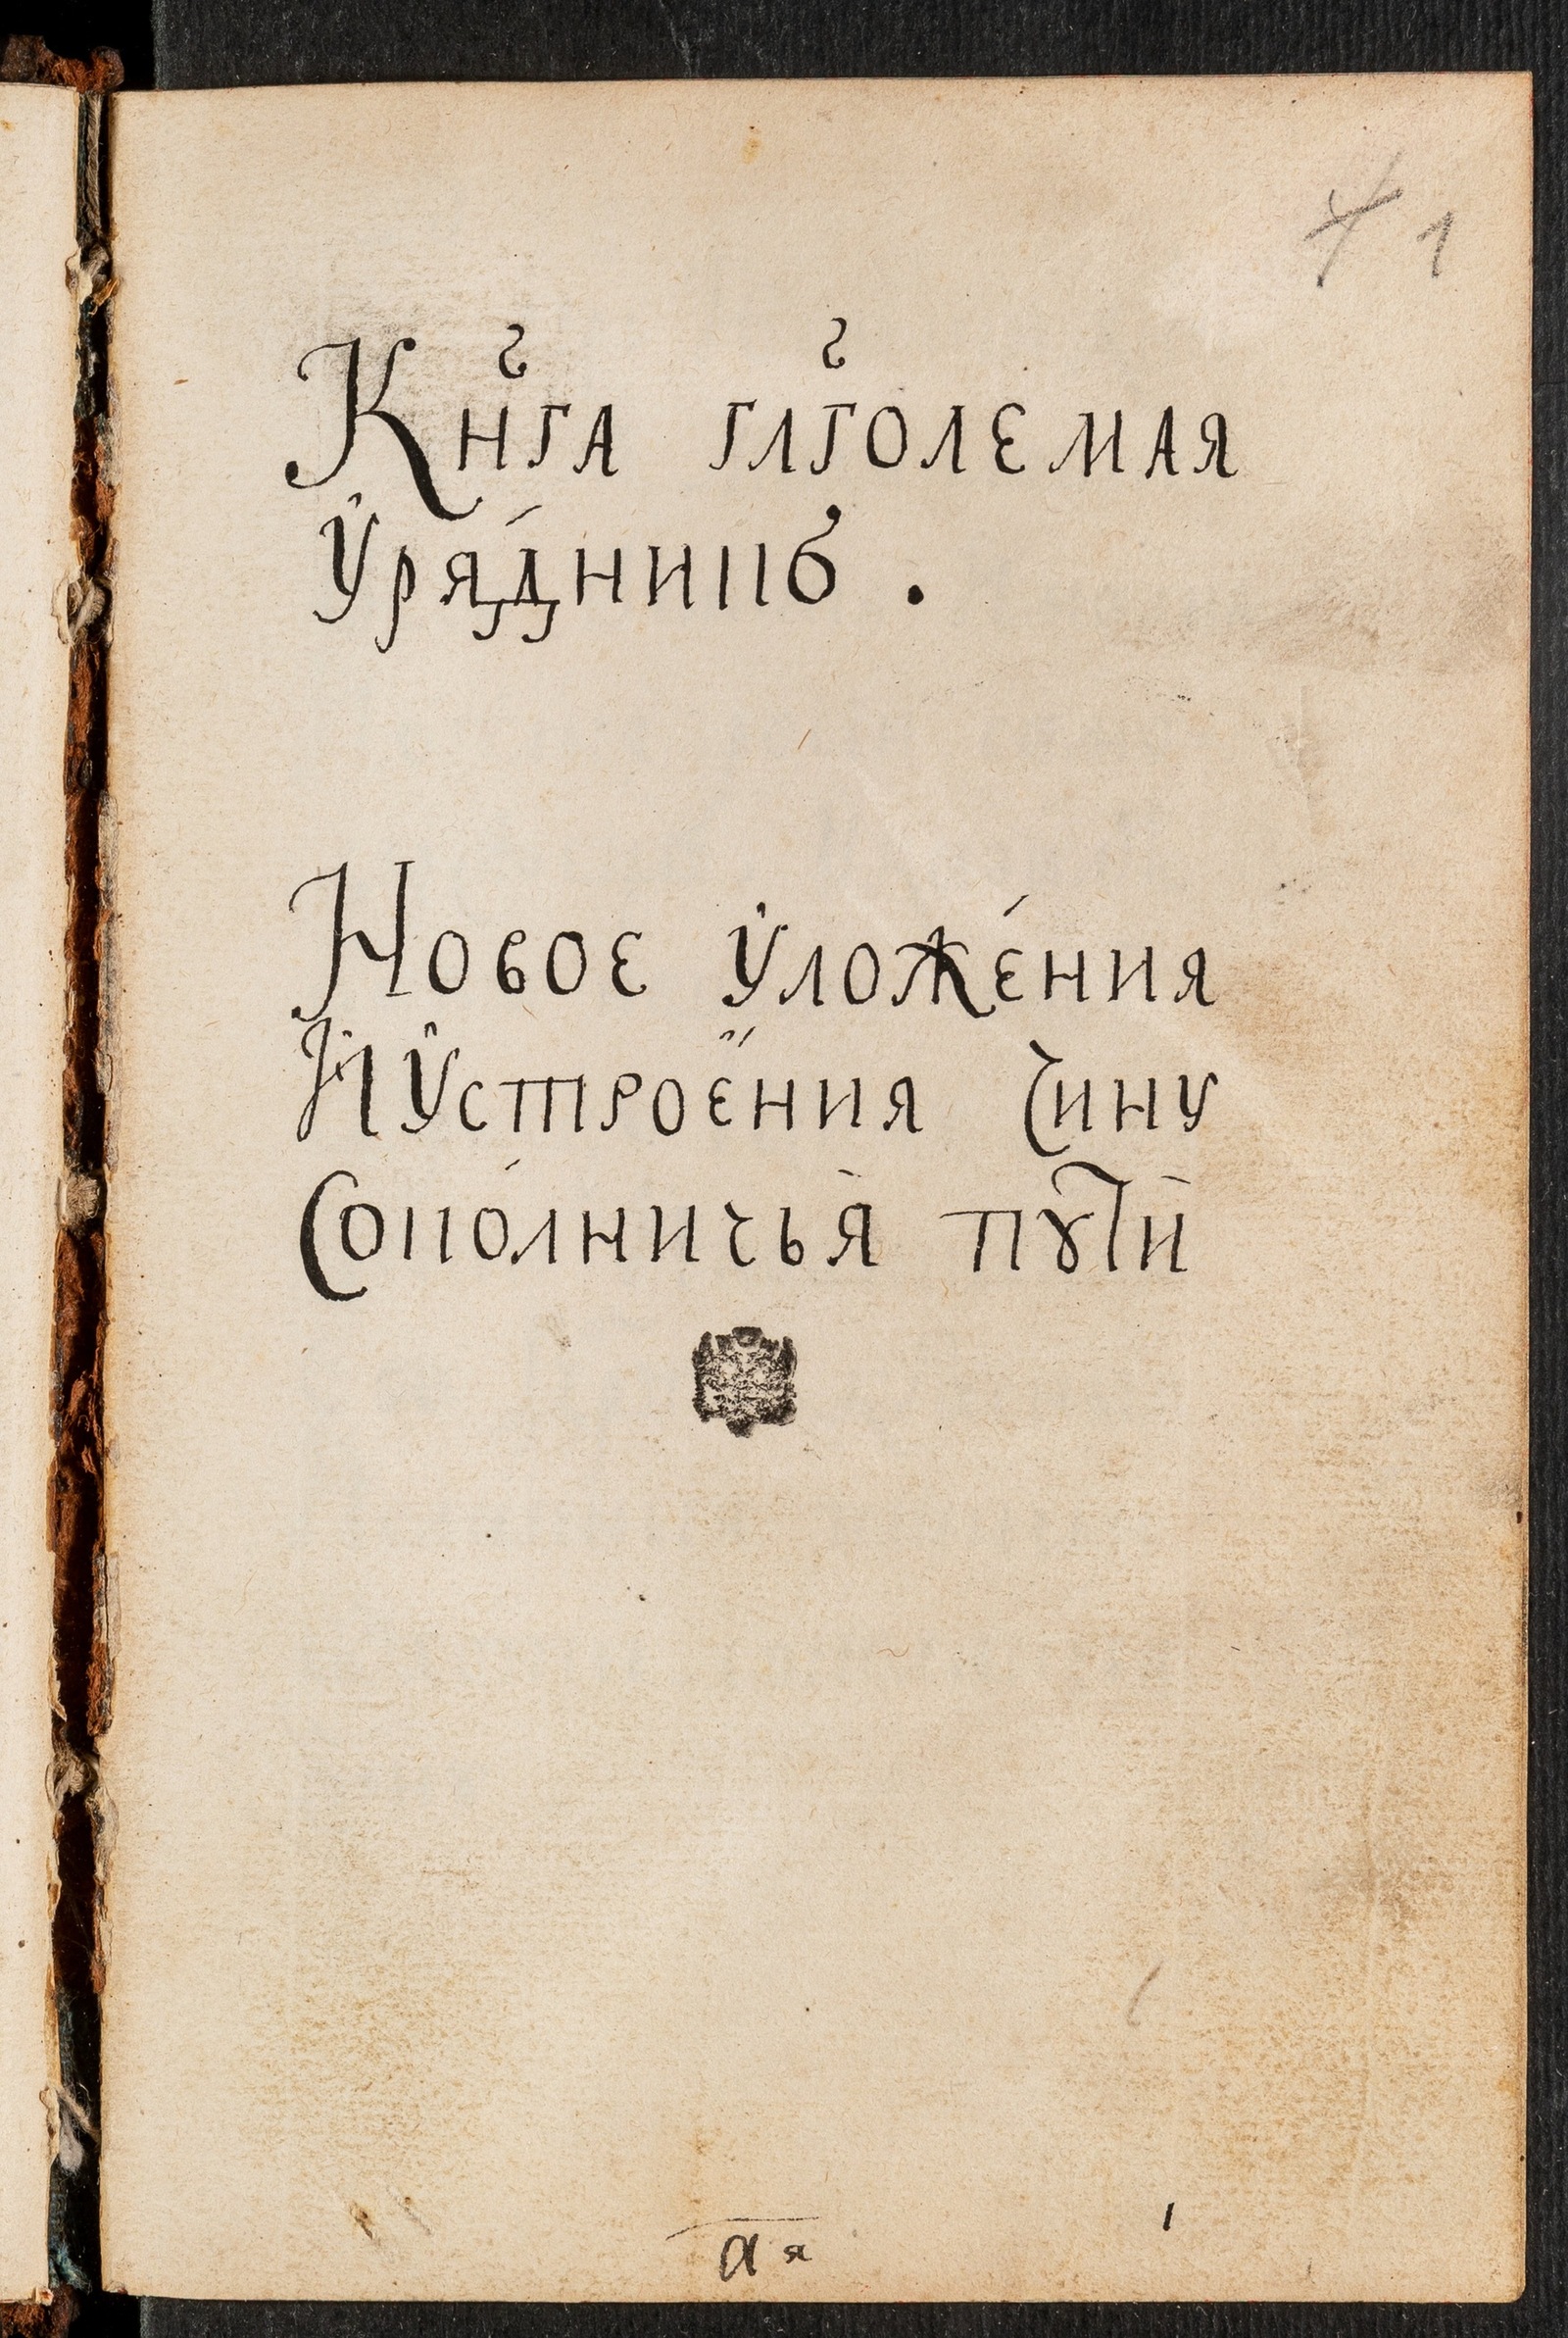 1
Кн҃га глг҃олемая
Урѧ́дникъ .
Новое уложе́ния
И устрое́ния чину
Соко́лничья̀ пꙋтѝ
а҃ я
1